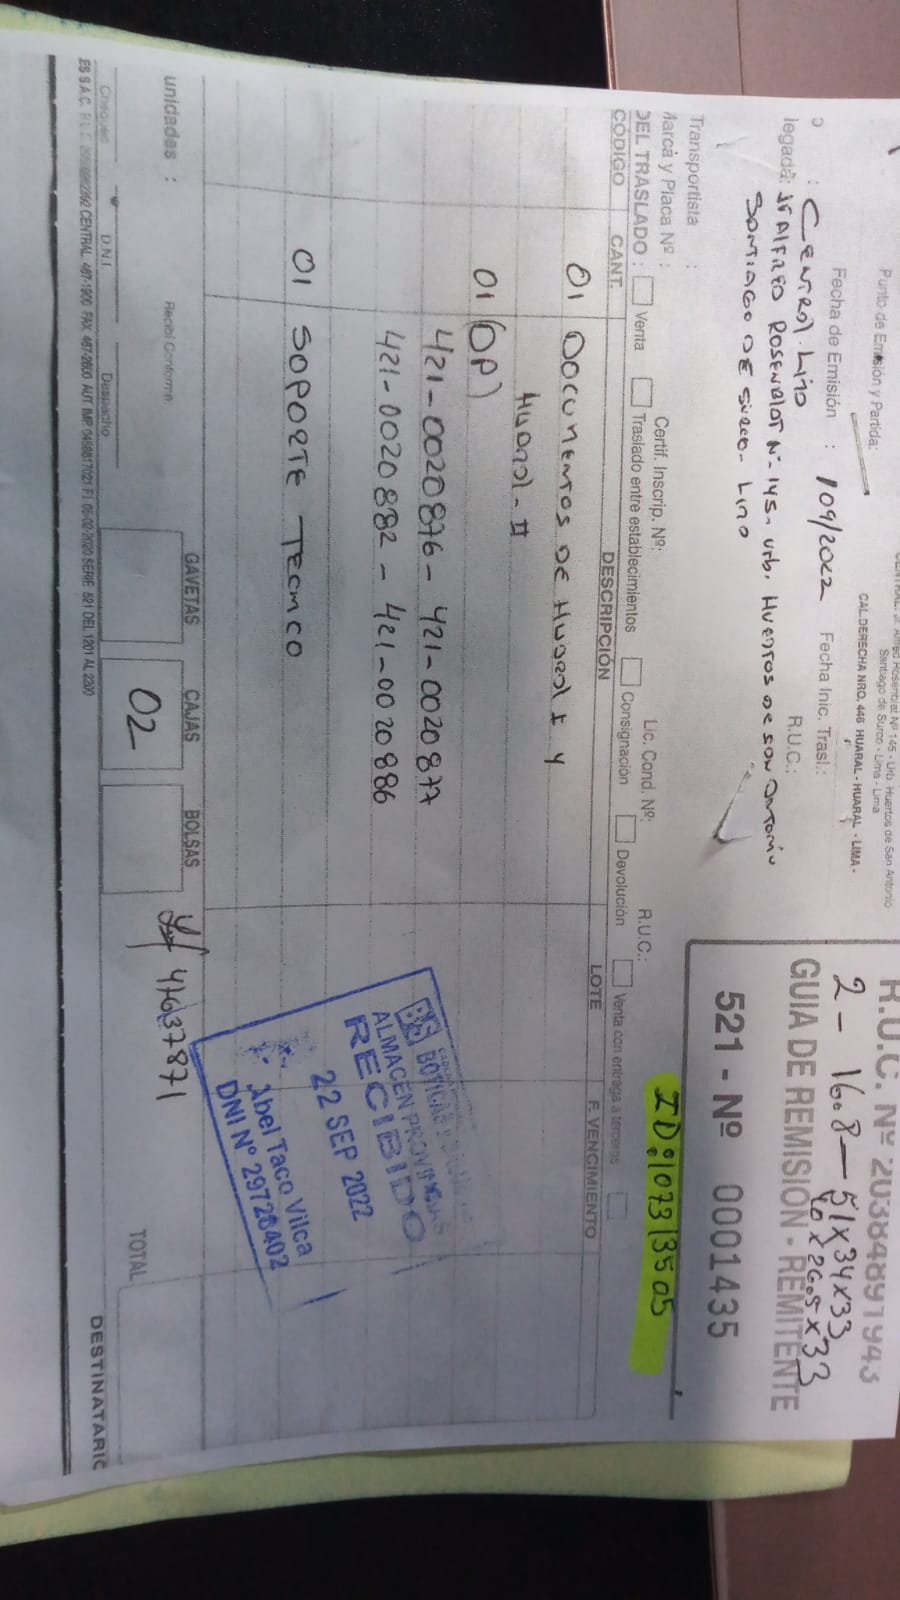 CENTRAL: Jr. Alfred Rosenblat Nº 145 - Urb. Huertos de San Antonio
Santiago de Surco - Lima - Lima
Punto de Emisión y Partida:
CAL.DERECHA NRO. 446 HUARAL - HUARAL - LIMA -
R.U.C. Nº 20384891943
2 - 16.8 - 51x34x33
40x26.5x33
GUIA DE REMISIÓN - REMITENTE
521 - Nº 0001435
Fecha de Emisión : /09/2022 Fecha Inic. Trasl.:
: CENTRAL LIMA R.U.C.:
legada: JR ALFREDO ROSENBLAT N- 145. Urb. HUERTOS DE SAN ANTONIO
SANTIAGO DE SURCO - LIMA
Transportista : R.U.C.:
Marca y Placa Nº : Certif. Inscrip. Nº: Lic. Cond. Nº:
ID:107313505
DEL TRASLADO : Venta Traslado entre establecimientos Consignación Devolución Venta con entrega a terceros
CÓDIGO CANT. DESCRIPCIÓN LOTE F. VENCIMIENTO
01 DOCUMENTOS DE HUARAL I Y
HUARAL - II
01 (OP)
421-0020876 - 421-0020877
421-0020882 - 421-0020886
01 SOPORTE TECNICO
BS BOTICAS
ALMACEN PROVINCIAS
RECIBIDO
22 SEP 2022
Abel Taco Vilca
DNI Nº 29728402
47637871
unidades :
Recibí Conforme
GAVETAS CAJAS BOLSAS TOTAL
02
Chequeo D.N.I Despacho
CENTRAL 467-1900 FAX: 467-2600 AUT. IMP. 0458817021 F.I. 05-02-2020 SERIE 521 DEL 1201 AL 2200
DESTINATARIO